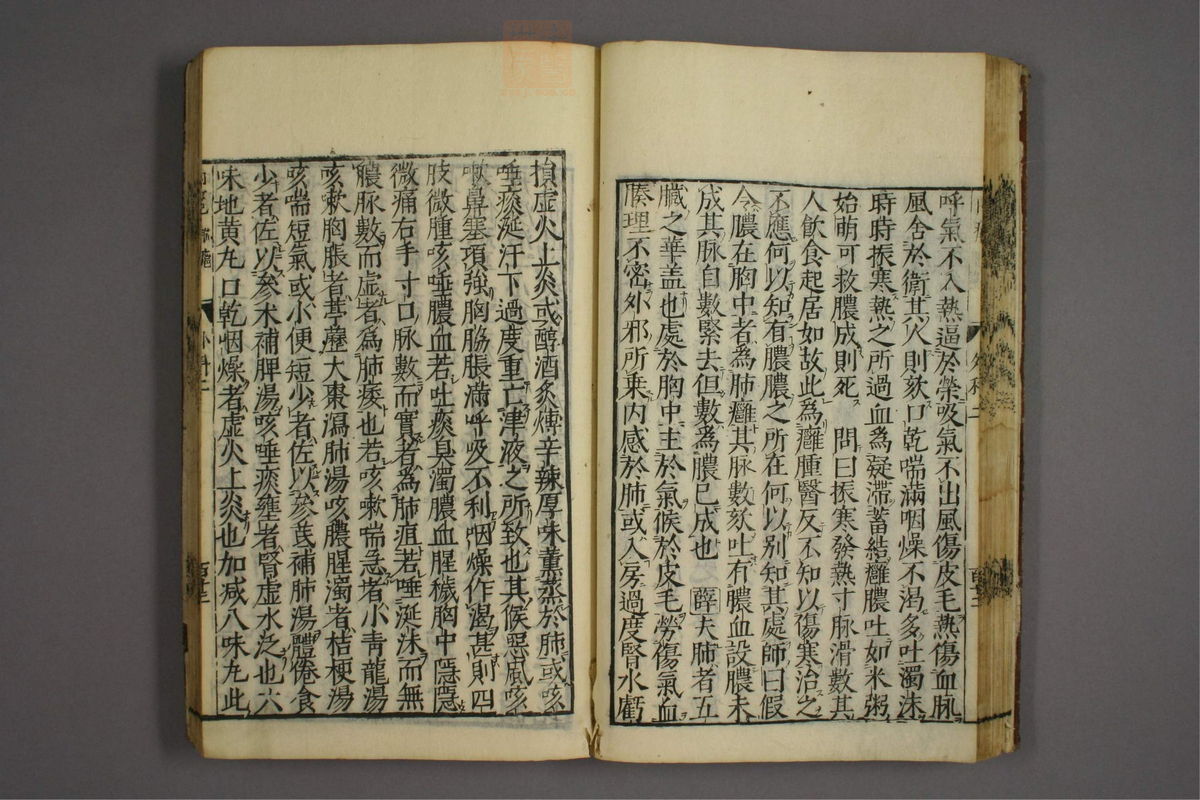 呼氣不入熱逼於榮吸氣不出風傷皮毛熱傷血脉
風舍於衛其人則欬口乾喘滿咽燥不渴多吐濁沫
時時振寒熱之所過血為凝滯蓄結癰膿吐如米粥
始萌可救膿成則死　問曰振寒發熱寸脉滑數其
人飲食起居如故此為癰腫醫反不知以傷寒治之
不應何以知有膿膿之所在何以別知其處師曰假
令膿在胸中者為肺癰其脉數欬吐有膿血設膿未
成其脉自數緊去但數為膿已成也　薛夫肺者五
臟之華盖也處於胸中主於氣候於皮毛勞傷氣血
腠理不密外邪所乗内感於肺或入房過度腎水虧
損虛火上炎或醇酒炙煿辛辣厚味薰蒸於肺或咳
唾痰涎汗下過度重亡津液之所致也其候惡風咳
嗽鼻塞項強胸脇脹滿呼吸不利咽燥作渴甚則四
肢微腫咳唾膿血若吐痰臭濁膿血腥穢胸中隱隱
微痛右手寸口脉數而實者為肺疽若唾涎沫而無
膿脉數而虛者為肺痿也若咳嗽喘急者小青龍湯
咳嗽胸脹者葶藶大棗瀉肺湯咳膿腥濁者桔梗湯
咳喘短氣或小便短少者佐以參芪補肺湯體倦食
少者佐以參朮補脾湯咳唾痰壅者腎虛水泛也六
味地黄丸口乾咽燥者虛火上炎也加减八味丸此